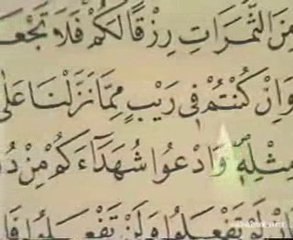 مِنَ الثَّمَرَاتِ رِزْقًا لَكُمْ فَلَا تَجْعَ
وَاِنْ كُنْتُمْ فٖى رَيْبٍ مِمَّا نَزَّلْنَا عَلٰى
مِثْلِهٖ وَادْعُوا شُهَدَٓاءَكُمْ مِنْ دُ
تَفْعَلُوا وَلَنْ تَفْعَلُوا فَا